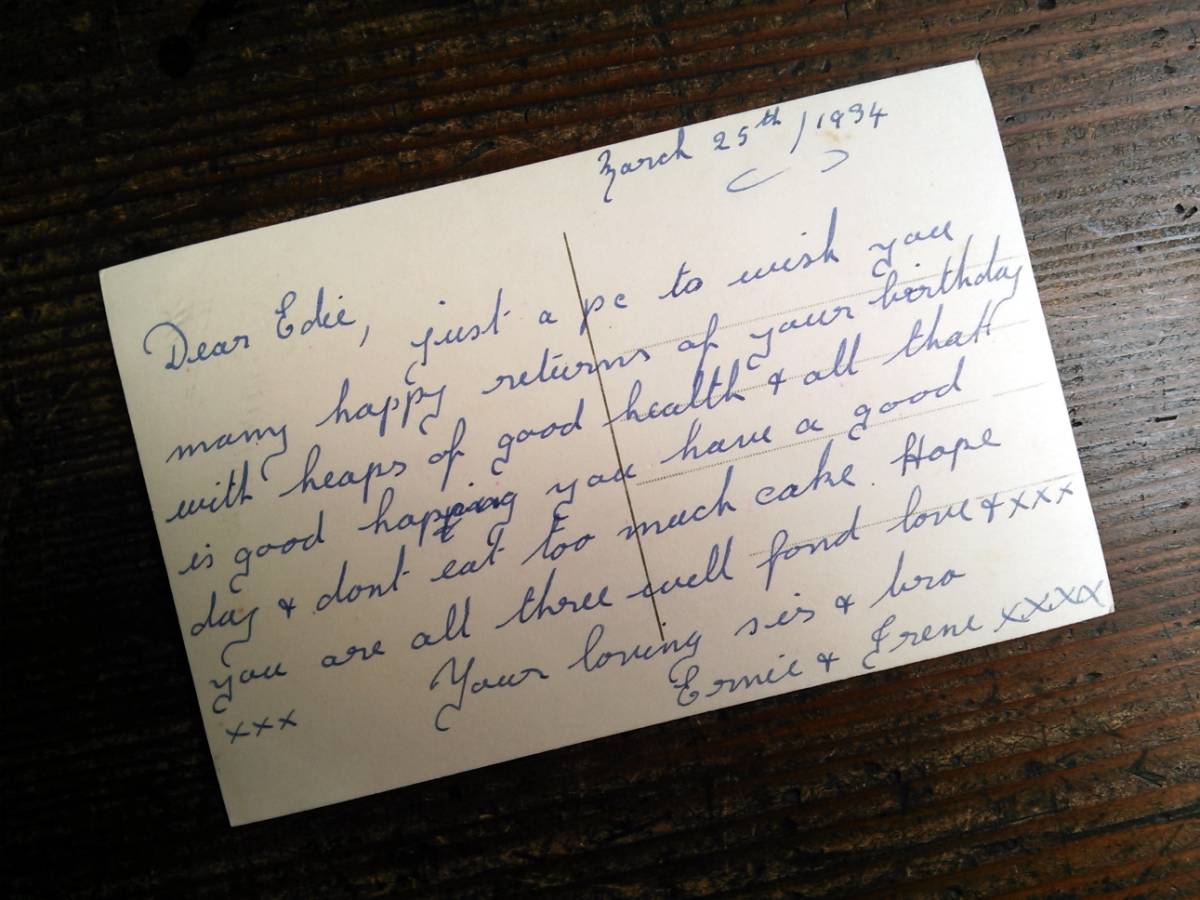 March 25th / 1934
Dear Edie, just a pc to wish you
many happy returns of your birthday
with heaps of good health & all that
is good hopping you have a good
day & dont eat too much cake. Hope
you are all three well fond love & xxx
Your loving sis & bro
xxx Ernie & Irene xxxx